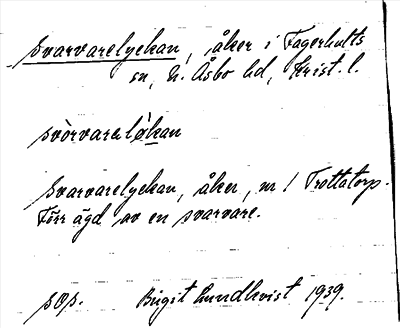 Svarvarelyckan, åker i Fagerhults
sn, N. Åsbo hd, Krist. l.
svòrvaraløkan
Svarvarelyckan, åker, nr 1 Trottatorp.
Förr ägd av en svarvare.
sop. Birgit Lundkvist 1939.